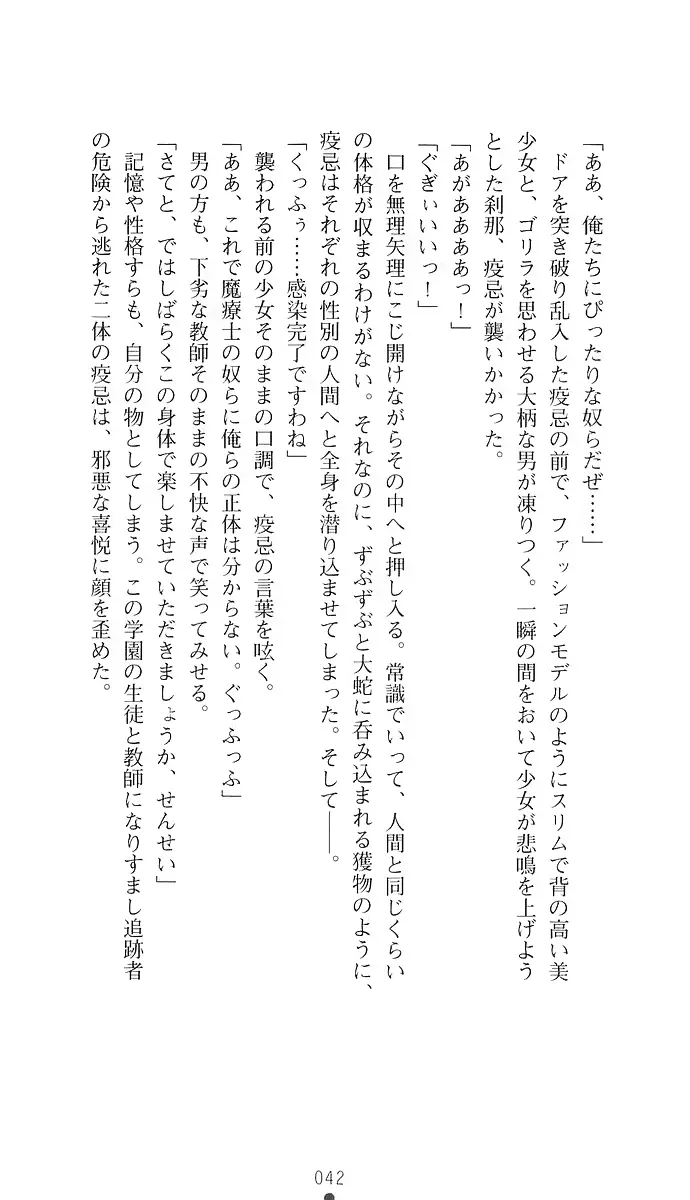 「ああ、俺たちにぴったりな奴らだぜ……」
　ドアを突き破り乱入した疫忌の前で、ファッションモデルのようにスリムで背の高い美
少女と、ゴリラを思わせる大柄な男が凍りつく。一瞬の間をおいて少女が悲鳴を上げよう
とした刹那、疫忌が襲いかかった。
「あがああああっ！」
「ぐぎぃいいっ！」
　口を無理矢理にこじ開けながらその中へと押し入る。常識でいって、人間と同じくらい
の体格が収まるわけがない。それなのに、ずぶずぶと大蛇に呑み込まれる獲物のように、
疫忌はそれぞれの性別の人間へと全身を潜り込ませてしまった。そして――。
「くっふぅ……感染完了ですわね」
　襲われる前の少女そのままの口調で、疫忌の言葉を呟く。
「ああ、これで魔療士の奴らに俺らの正体は分からない。ぐっふっふ」
　男の方も、下劣な教師そのままの不快な声で笑ってみせる。
「さてと、ではしばらくこの身体で楽しませていただきましょうか、せんせい」
　記憶や性格すらも、自分の物としてしまう。この学園の生徒と教師になりすまし追跡者
の危険から逃れた二体の疫忌は、邪悪な喜悦に顔を歪めた。
042